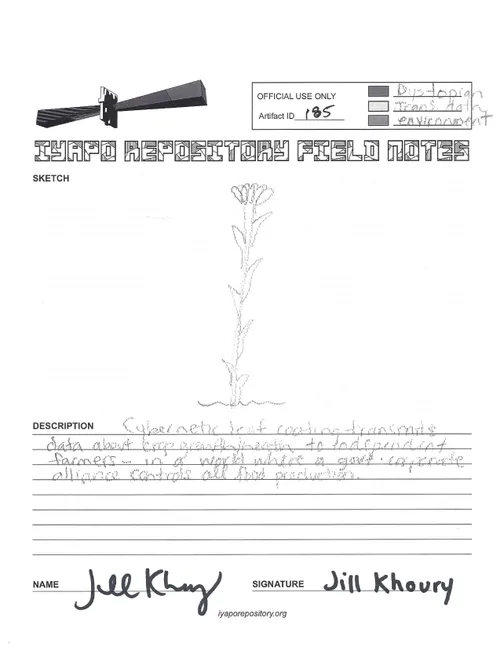 OFFICIAL USE ONLY
Artifact ID 185
Dystopian
Trans. data
environment
IYAPO REPOSITORY FIELD NOTES
SKETCH
DESCRIPTION Cybernetic leaf coating transmits
data about crop growth/health to independent
farmers - in a world where a govt-corporate
alliance controls all food production.
NAME Jill Khoury SIGNATURE Jill Khoury
iyaporepository.org